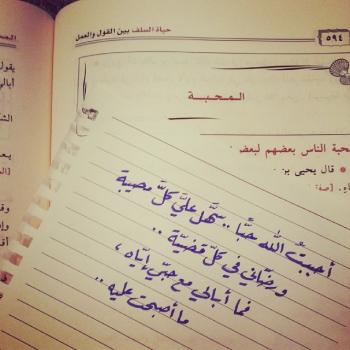 حياة السلف بين القول والعمل
٥٩٤
المحبة
محبة الناس بعضهم لبعض
* قال يحيى بن
أحببتُ الله حبًّا .. سهّل عليّ كلّ مصيبة
ورضّاني في كلّ قضيّة ..
فما أبالي مع حبّي إيّاه ،
ما أصبحت عليه ..